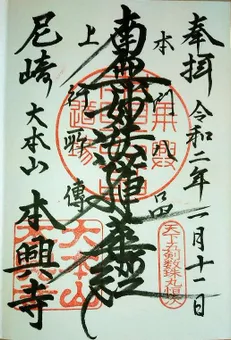 奉拝 令和二年一月十一日
本門八品
上行所傳
南無妙法蓮華経
尼崎 大本山 本興寺
天下五剣数珠丸恒次
大本山